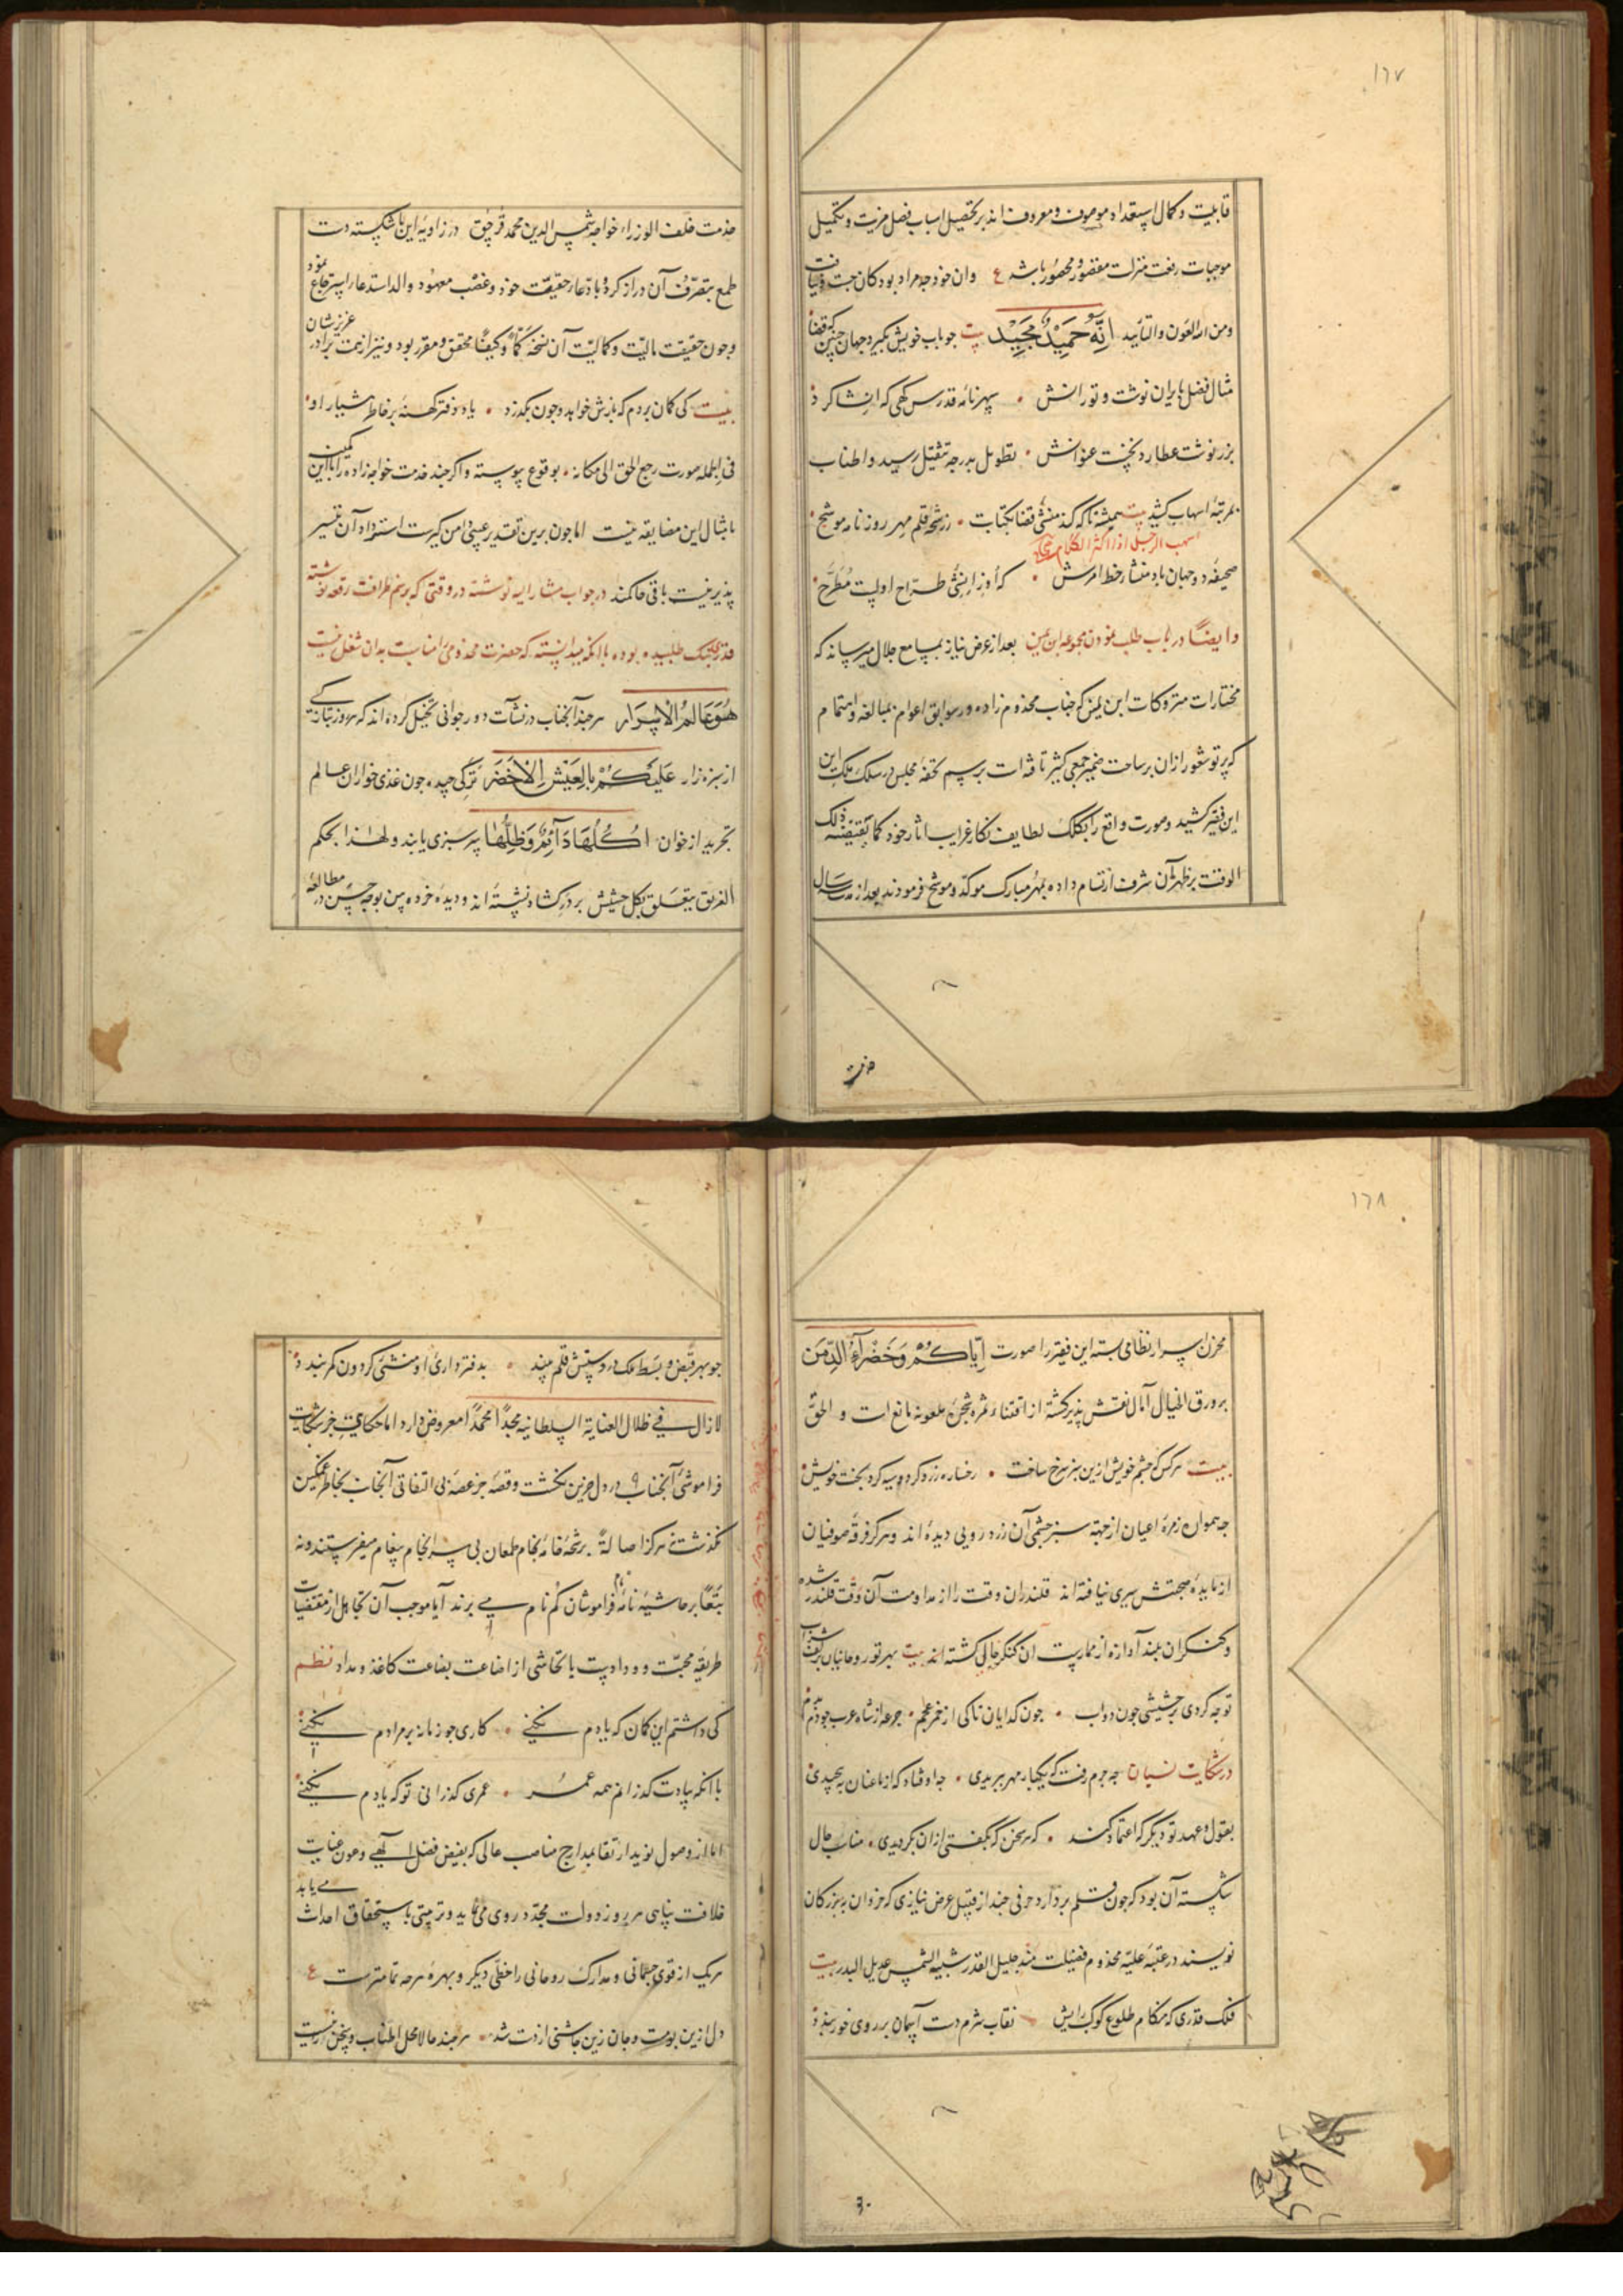 ١٦٧
قابلیت و کمال استعداد موصوف و معروف اند بر تحصیل اسباب فضل مزیت و تکمیل
موجبات رفعت منزلت مقصور و محصور باشد ع وان خود چه مراد بود کان جست و نیافت
ومن الله العون والتأیید اِنَّهُ حَمِیْدٌ مَجِیْد بیت جو باب خویش بکیرد جهان جنین که قضا
مثال فضل بایران نوشت و تورانش
بزر نوشت عطارد نخست عنوانش تطویل بدرجه تثقیل رسید و اطناب
بمرتبه اسهاب کشید بیت همیشه تا که کند منشی قضا بکتابت ز رشحه قلم مهر روزنامه موشح
اسهب الرجل اذا اکثر الکلام
صحیفه دو جهان باد منشا خط امرش که
وایضا در باب طلب نمودن مجموعه ابن یمین بعد از عرض نیاز بمسامع جلال میرساند که
مختارات متروکات ابن یمین که جناب مخدوم زاده در سوابق اعوام بمبالغه و اهتمام
که پرتو شعور ازان بر ساحت ضمیر جمعی کثیر تافته است برسم تحفه مجلس در سلک ملک این
این فقیر کشید و صورت واقع را بکلک لطایف نکار غرایب اثار خود کما یقتضیه ذلک
الوقت بر ظهر آن شرف ارتسام داده بمهر مبارک موکد و موشح فرمودند بعد از مدت سال
خدمت
خدمت خلف الوزراء خواجه شمس الدین محمد قرجق در زاویه این شکسته دست
طمع بتصرف آن دراز کرد و بادعاء حقیقت خود و غصب معهود والد استدعاء استرجاع نمود
وجون حقیقت مالیت و کمالیت آن نسخه کمّاً و کیفاً محقق و مقرر بود و نیز از یمت برادر عزیزشان
بیت کی کمان بردم که بازش خواهد و جون بکذرد یاد دفتر کهنه بر خاطر هشیار او
فی الجمله صورت رجع الحق الی مکانه بوقوع پیوسته و اکر جند خدمت خواجه زاده را با این کمین
بامثال این مضایقه نیست اما جون برین تقدیر عیبی دامن کیرست استرداد آن تیسیر
پذیر نیست باقی حاکمند در جواب مشار الیه نوشته در وقتی که برسم ظرافت رقعه نوشته
قدری بنک طلبیده بوده با انکه میدانسته که حضرت مخدومی را مناسبت بدان شغل نیست
هُوَ عَالِمُ الْاَسْرَار هرجند آنجناب در نشآت دور جوانی تخیل کرده اند که هر روز تبازکی
از سبزه زار عَلَیْکُمْ بِالْعَیْشِ الْاَخْضَر برکی جیده جون غذی خواران عالم
تجرید از خوان اُکُلُهَا دَآئِمٌ وَظِلُّهَا سرسبزی یابند و لهذا بحکم
الغریق یتعلق بکل حشیش بر درکشاد نشسته اند و دیده خرده بین بوجه حسن در مطالعه
١٦٨
مخزن اسرار نظامی بسته این فقیر را صورت اِیَّاکُمْ وَخَضْرَآءَ الدِّمَن
بر ورق الخیال آمال نقش پذیر کشته از اقتناء ثمره شجره ملعونه مانع است و الحق
بیت هرکس که جشم خویش ازین سبز سرخ ساخت رخساره زرد کرد و سیه کرد بخت خویش
جه هموار زمره اعیان از جهته سبز جشمی آن زرد رویی دیده اند و هرکز فرقه صوفیان
از مایده صحبتش سیری نیافته اند قلندران وقت را از مداومت آن وقت قلندر شده
و کنکران بلند آوازه از ممارست آن کنکر جالی کشته اند بیت
توجه کردی بر حشیشی جون دواب جون کدایان تاکی از خمر عجم جرعه از شاه عرب جو ذم بدم
در شکایت نسیان جه جرم رفت که یکبار مهر ببریدی جه اوفتاد که از ما عنان بپیچیدی
بقول و عهد تو دیکر که اعتماد کند که هر سخن که بکفتی ازان بکردیدی مناسب حال
شکسته آن بود که جون قلم بردارد حرفی جند از قبیل عرض نیازی که خردان به بزرکان
نویسند در عتبه علیه مخدوم فضیلت مند جلیل القدر شبیه الشمس عدیل البدر بیت
فلک قدری که هنکام طلوع کوکب رایش نقاب شرم دست آسمان بر روی خور بندد
جو بهر قبض و بسط ملک در دستش قلم بیند بدفترداری او منشی کردون کمر بندد
لازال فی ظلال العنایة السلطانیه مجداً امحمداً معروض دارد اما حکایت جز شکایت
فراموشی آنجناب در دل حزین نکشت و قصه جز غصه بی التفاتی آنجناب بخاطر غمکین
نکذشت نه هرکز اصالةً برشحه خامه بکام طمعان بی سرانجام پیغام میفرستند و نه
تبعاً بر حاشیه نامه فراموشان کم نام می برند آیا موجب آن تجاهل از مقتضیات
طریقه محبت و ودادست یا تحاشی از اضاعت بضاعت کاغذ و مداد نظم
کی داشتم این کمان که یادم نکنی کاری جو زمانه بر مرادم نکنی
با انکه بیادت کذرانم همه عمر عمری کذرانی تو که یادم نکنی
اما از وصول نوید ارتقا بمدارج مناصب عالی که بفیض فضل الهی و عون عنایت
خلافت پناهی هر روز دولت مجدد روی می نماید و ترتیبی باستحقاق احداث می یابد
هریک از قوی جسمانی و مدارک روحانی را حظی دیکر و بهره هرجه تمامترست ع
دل ازین بوست و جان زین جاشنی از دست شد هرجند حالا محل اطناب و سخن آرایی نیست